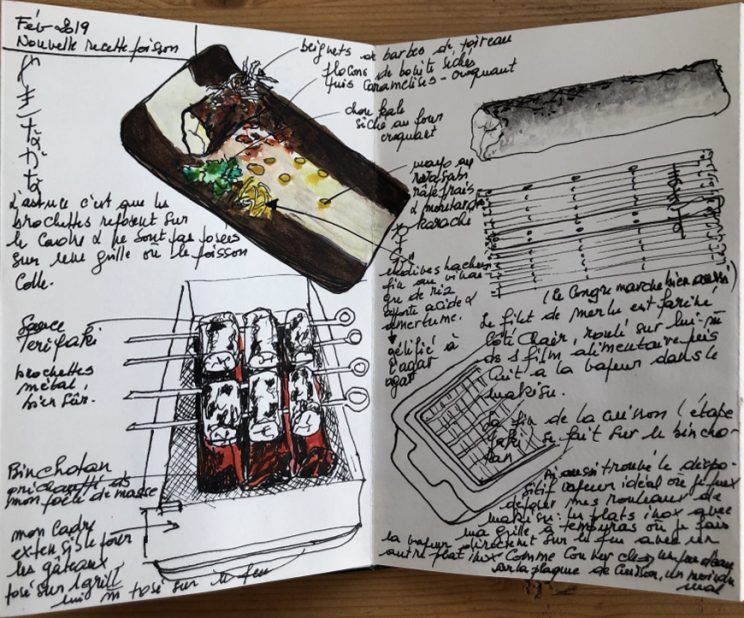 Fév 2019
Nouvelle recette poisson
beignets de barbes de poireau
flocons de bonite séchés
puis caramélisés - croquant
chou kale
séché au four
croquant
mayo au
wasabi
râpé frais
& moutarde
Karachi
endives hachées
fin au vinai
gre de riz
apporte acide &
amertume.
gélifié à
l'agar
agar
L'astuce c'est que les
brochettes reposent sur
le cadre & ne sont pas posées
sur une grille où le poisson
colle.
Sauce
Teriyaki
brochettes
métal,
bien sûr.
Binchotan
mon poêle de masse
mon cadre
extensible pour
les gâteaux
posé sur 1 grill
lui m posé sur le feu
(le Congre marche bien aussi)
Le filet de merlu est fariné
côté chair, roulé sur lui-m
ds 1 film alimentaire puis
cuit à la vapeur dans le
makisu.
La fin de la cuisson l'étape
Yaki se fait sur le bincho-
tan
J'ai aussi trouvé le dispo-
sitif vapeur idéal où je peux
déposer mes rouleaux de
makisu: les plats inox avec
ma grille à tempuras où je fais
la vapeur directement sur le feu avec un
autre plat inox comme couvercle
sur la plaque de cuisson,